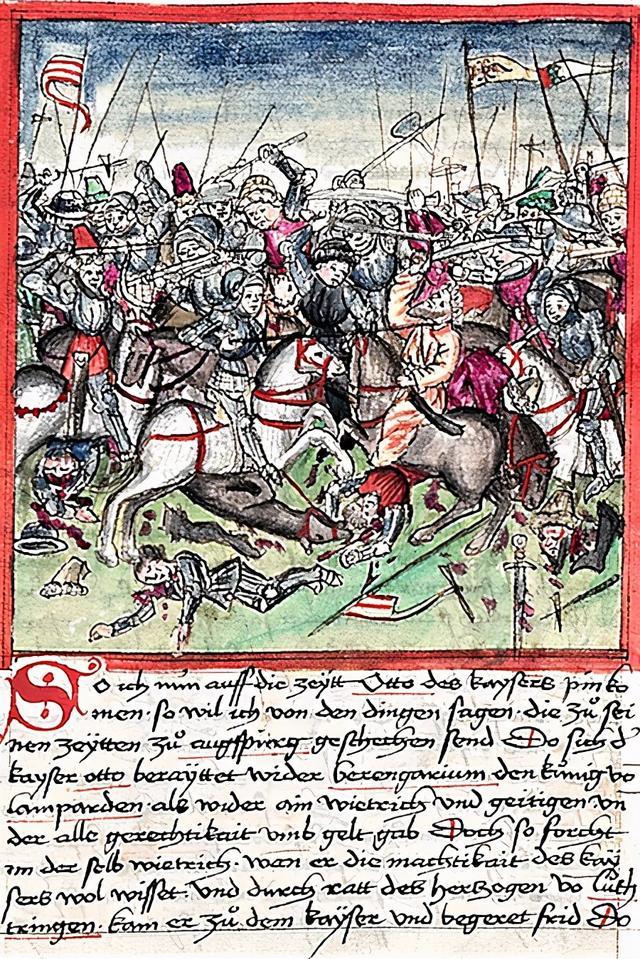 So ich nun auff die zeytt Otto des kaysers pin ko
men · so wil ich von den dingen sagen · die zů sei
nen zeytten zů augspurg geschechen send Do sich d'
kayser otto berayttet wider berengarium den kúnig vō
lamparden · als wider ain wietrich vnd geitigen vn
der alle gerechtikait vmb gelt gab Doch so forcht
im der selb wietrich · wan er die machtikait des kay
sers wol wisset · vnd durch ratt des herczogen vō luth
tringen · kam er zů dem kayser vnd begeret frid Do